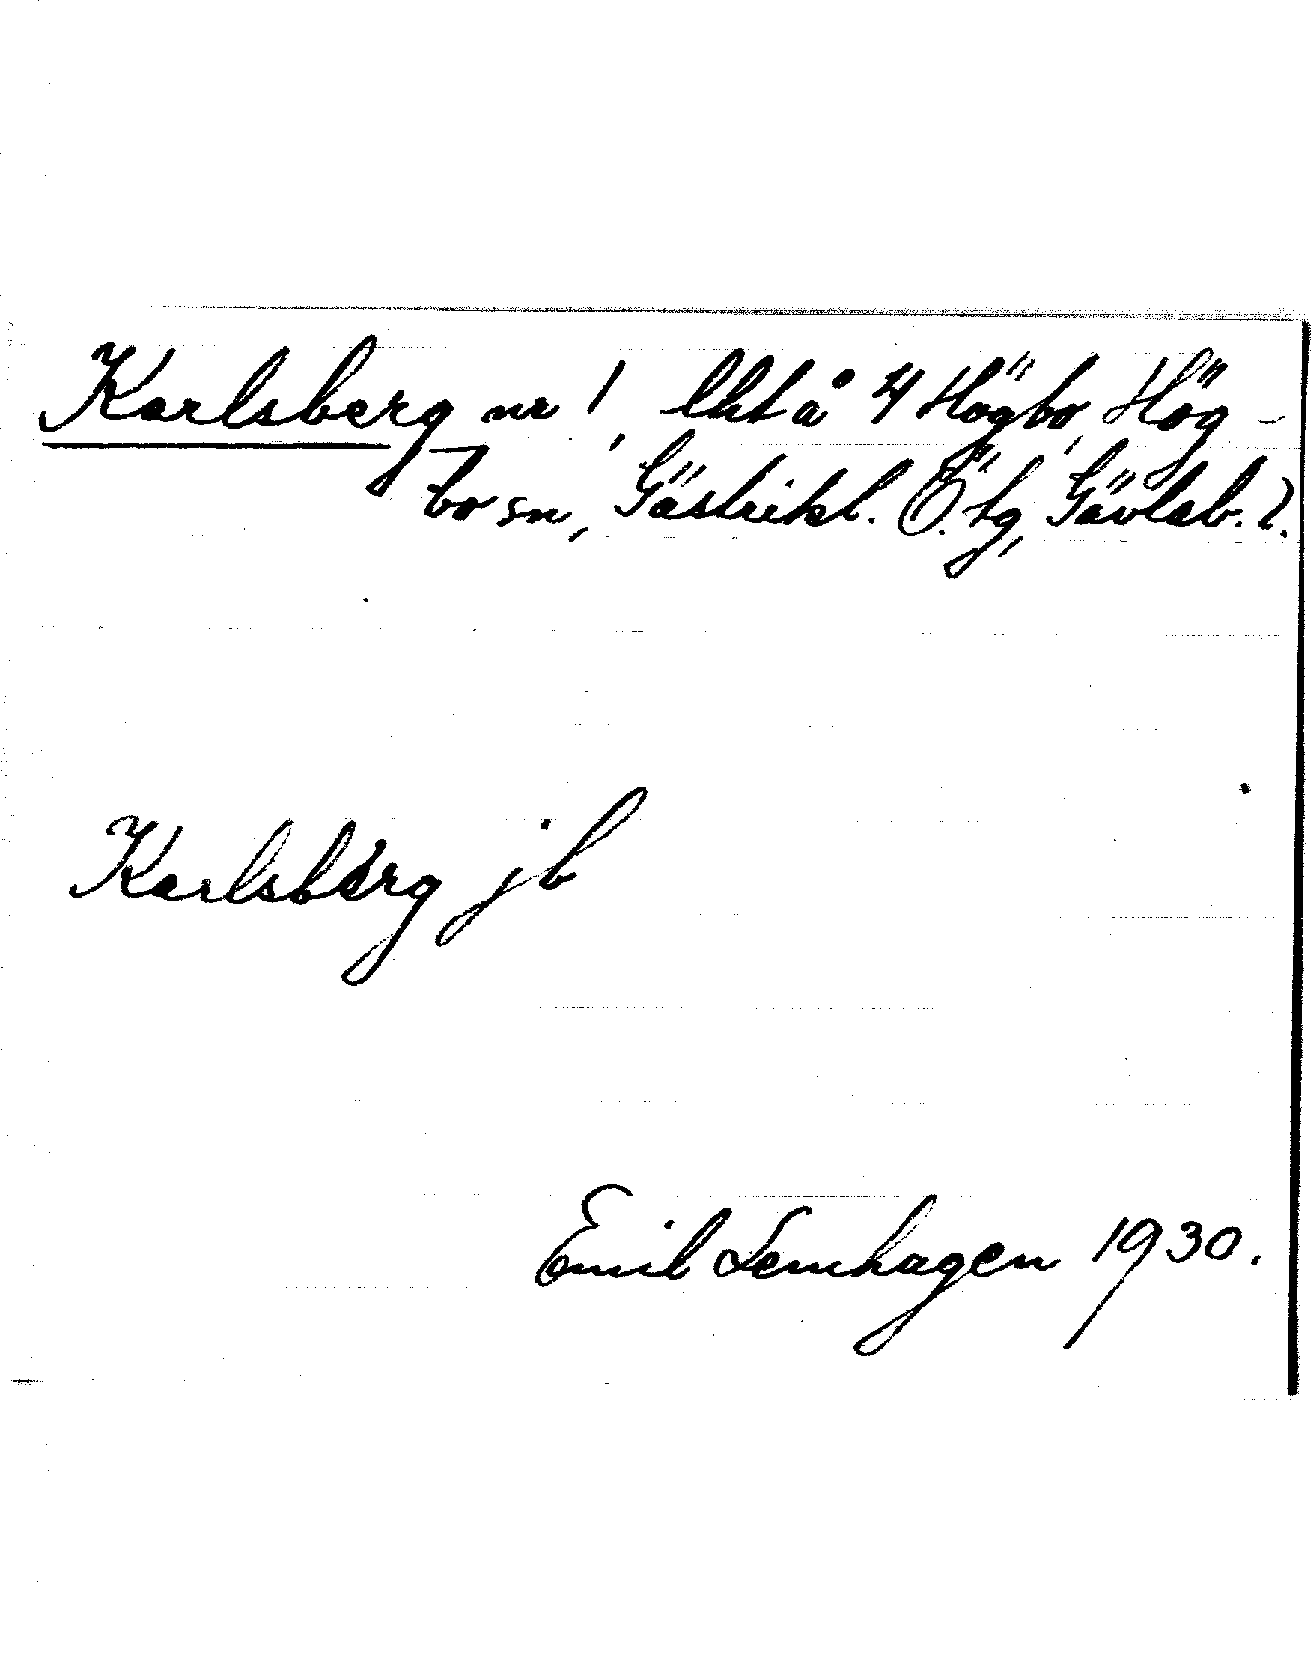 Karlsberg nr 1, lht å 4 Högbo, Hög-
bo sn, Gästrikl. Ö. tg, Gävleb. l.
Karlsberg jb
Emil Lernhagen 1930.